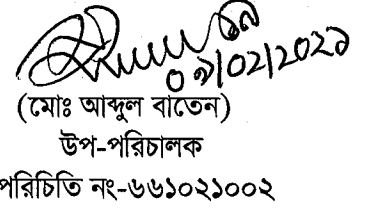 ০৯/০২/২০২১
(মোঃ আব্দুল বাতেন)
উপ-পরিচালক
পরিচিতি নং-৬৬১০২১০০২